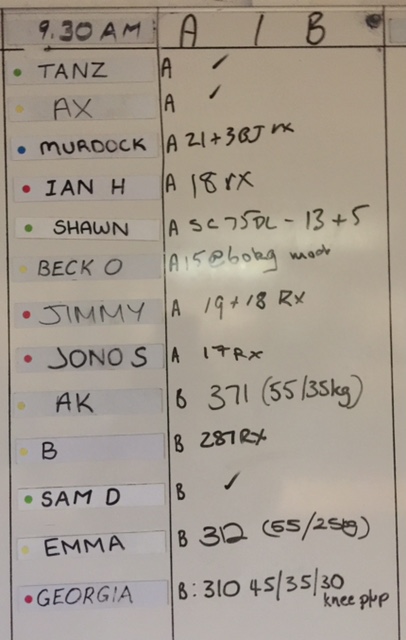 9.30 AM A / B
TANZ A ✓
AX A ✓
MURDOCK A 21+3BJ rx
IAN H A 18 rx
SHAWN A SC 75DL - 13 + 5
BECK O A 15 @ 60kg mod
JIMMY A 19+18 Rx
JONO S A 17 Rx
AK B 371 (55/35kg)
B B 287 Rx
SAM D B ✓
EMMA B 312 (55/25kg)
GEORGIA B: 310 45/35/30
knee